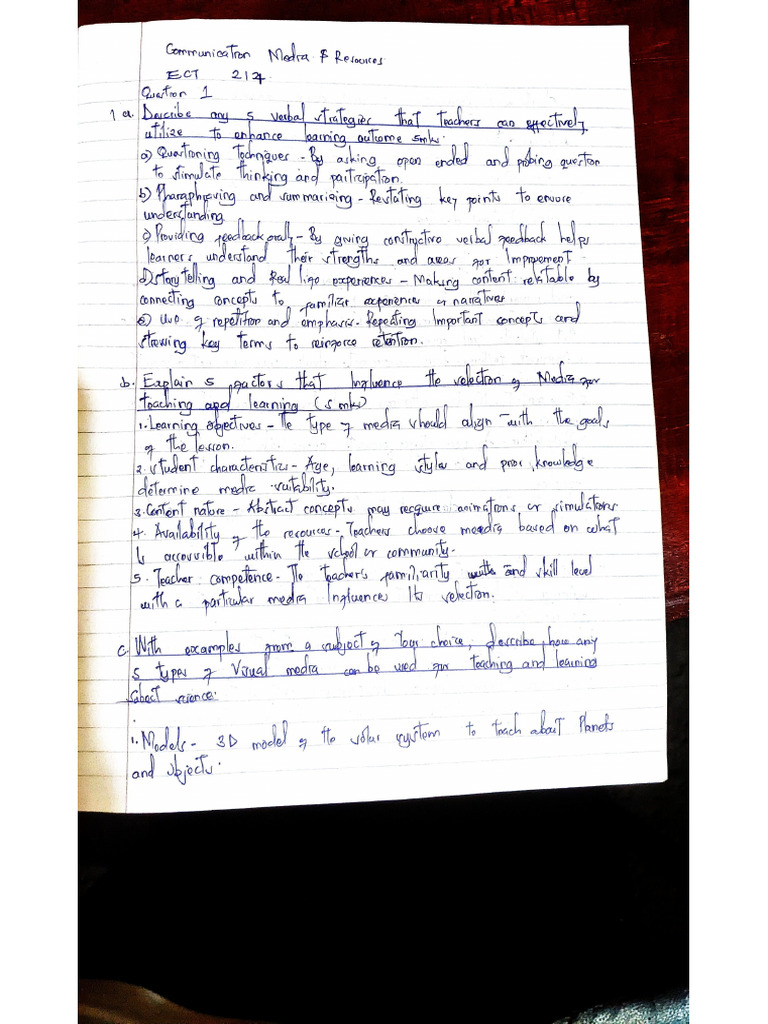 Communication Media & Resources
ECT 214
Question 1
1 a. Describe any 5 verbal strategies that teachers can effectively
utilize to enhance learning outcome 5mks.
a) Questioning techniques - By asking open ended and probing question
to stimulate thinking and participation.
b) Pharaphraving and summarizing - Restating key points to ensure
understanding
c) Providing feedback orally - By giving constructive verbal feedback helps
learners understand their strengths and areas for Improvement
d) Storytelling and Real life experiences - Making content relatable by
connecting concepts to familiar experiences or narratives
e) Use of repetition and emphasis. Repeating Important concepts and
stressing key terms to reinforce retention.
b. Explain 5 factors that Influence the selection of Media for
teaching and learning (5 mks)
1. Learning objectives - The type of media should align with the goals
of the lesson.
2. Student characteristics - Age, learning styles and prior knowledge
determine media suitability.
3. Content nature - Abstract concepts may require animations or simulations
4. Availability of the resources - Teachers choose media based on what
Is accessible within the school or community.
5. Teacher competence - The teachers familiarity and skill level
with a particular media Influences Its selection.
c. With examples from a subject of Your choice, describe how any
5 types of Visual media can be used for teaching and learning
science.
1. Models - 3D model of the solar system to teach about Planets
and objects.